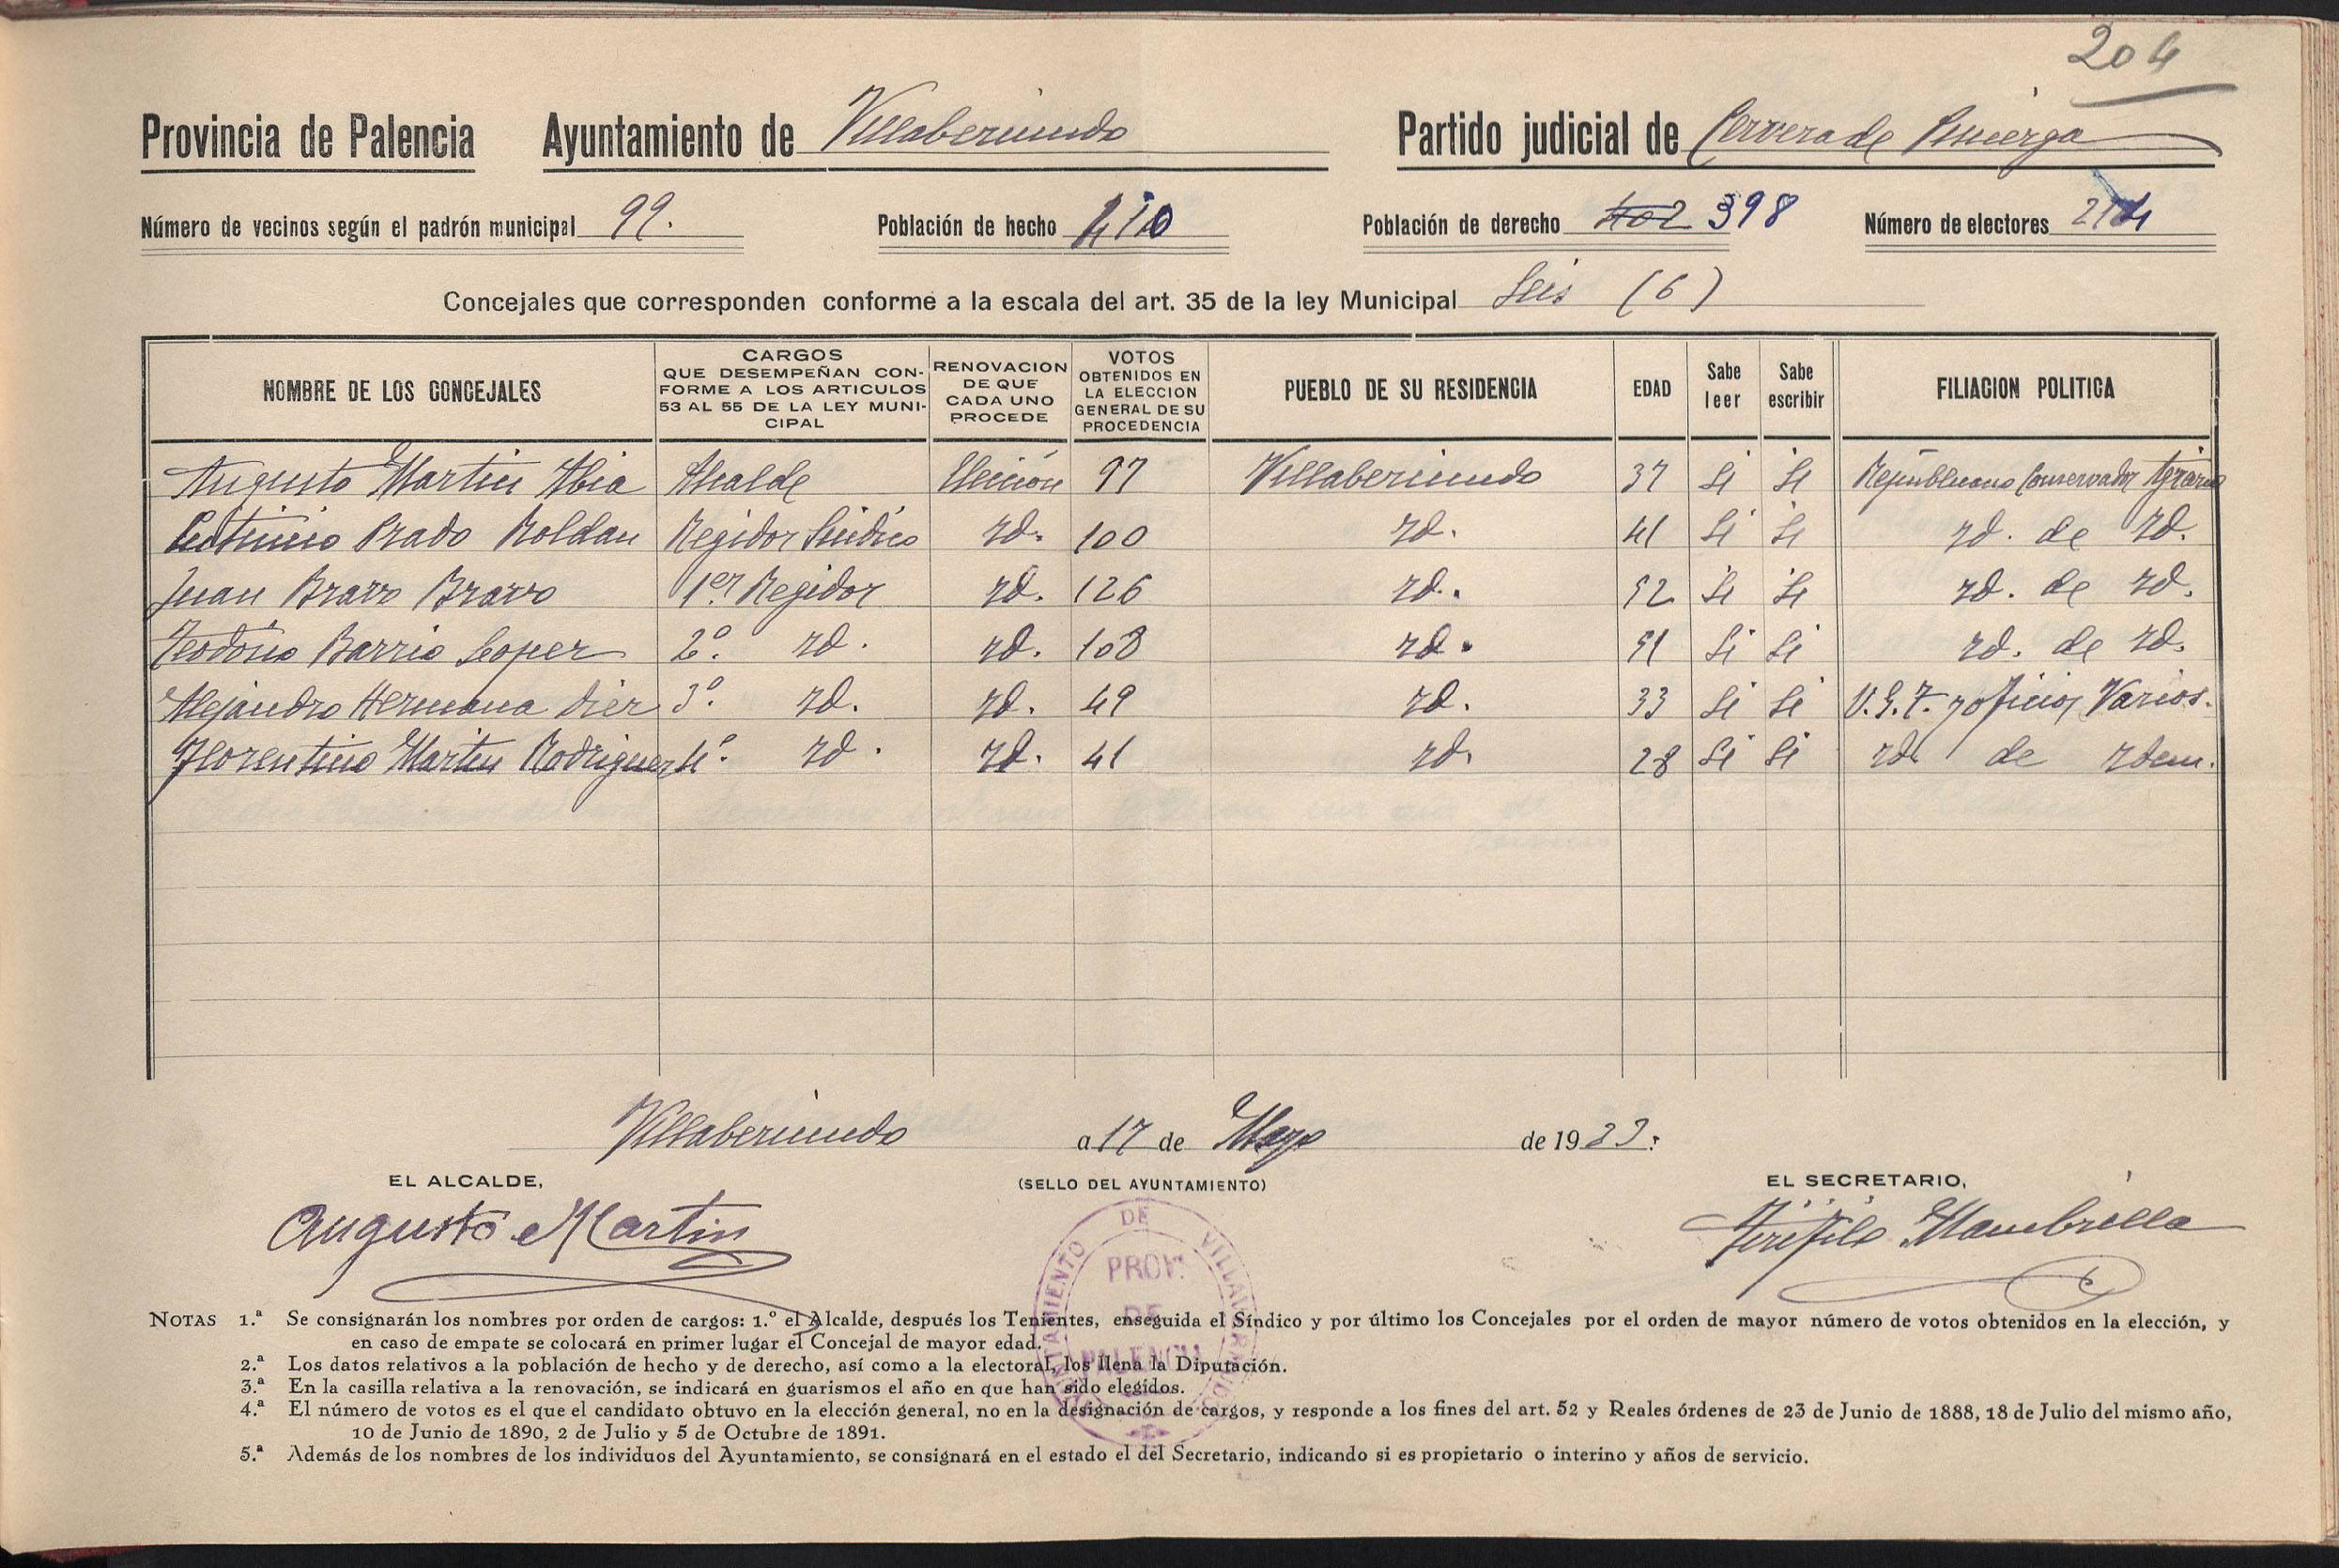 204
Provincia de Palencia Ayuntamiento de Villabermudo Partido judicial de Cervera de Pisuerga
Número de vecinos según el padrón municipal 99. Población de hecho 410 Población de derecho 402 398 Número de electores
Concejales que corresponden conforme a la escala del art. 35 de la ley Municipal Seis (6)
NOMBRE DE LOS CONCEJALES CARGOS QUE DESEMPEÑAN CONFORME A LOS ARTICULOS 53 AL 55 DE LA LEY MUNICIPAL RENOVACION DE QUE CADA UNO PROCEDE VOTOS OBTENIDOS EN LA ELECCION GENERAL DE SU PROCEDENCIA PUEBLO DE SU RESIDENCIA EDAD Sabe leer Sabe escribir FILIACION POLITICA
Augusto Martin Abia Alcalde Elección 97 Villabermudo 37 Si Si Republicano Conservador Agrario
Prado Roldan Regidor Sindico id. 100 id. 41 Si Si id. de id.
Juan Bravo Bravo 1er Regidor id. 126 id. 52 Si Si id. de id.
Teodosio Barrio Lopez 2º. id. id. 108 id. 51 Si Si id. de id.
Alejandro Hermana Diez 3º. id. id. 49 id. 33 Si Si U.G.T. y oficios Varios.
Florentino Martin Rodriguez 4º. id. id. 41 id. 28 Si Si id. de idem.
Villabermudo a 17 de Mayo de 1933.
EL ALCALDE, (SELLO DEL AYUNTAMIENTO) EL SECRETARIO,
Augusto Martin Mambrilla
AYUNTAMIENTO DE
PROV.
DE
PALENCIA
NOTAS 1.ª Se consignarán los nombres por orden de cargos: 1.º el Alcalde, después los Tenientes, enseguida el Síndico y por último los Concejales por el orden de mayor número de votos obtenidos en la elección, y
en caso de empate se colocará en primer lugar el Concejal de mayor edad.
2.ª Los datos relativos a la población de hecho y de derecho, así como a la electoral, los llena la Diputación.
3.ª En la casilla relativa a la renovación, se indicará en guarismos el año en que han sido elegidos.
4.ª El número de votos es el que el candidato obtuvo en la elección general, no en la designación de cargos, y responde a los fines del art. 52 y Reales órdenes de 23 de Junio de 1888, 18 de Julio del mismo año,
10 de Junio de 1890, 2 de Julio y 5 de Octubre de 1891.
5.ª Además de los nombres de los individuos del Ayuntamiento, se consignará en el estado el del Secretario, indicando si es propietario o interino y años de servicio.